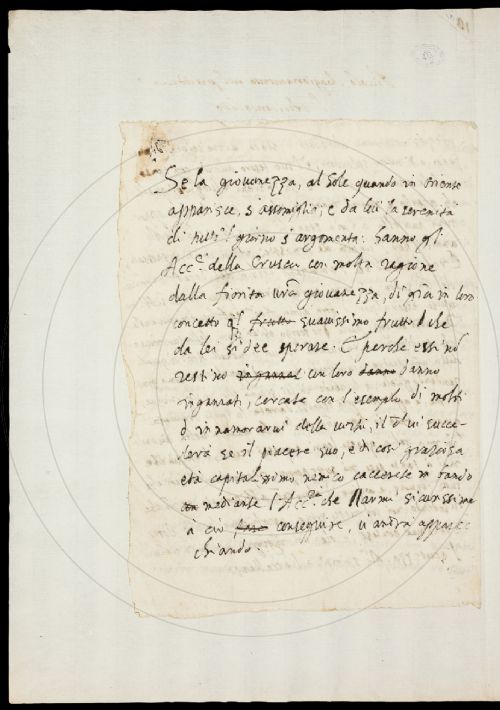 Se la giovanezza, al Sole quando in oriente
apparisce, s'assomiglia, e da lei la serenità
di tutto 'l giorno s'argomenta. hanno gl'
Acc.ci della Crusca con molta ragione
dalla fiorita vra giovanezza, di già in loro
concetto frutto suavissimo frutto che
da lei si dee sperare. E perche essi nō
restino ingannati con loro danno danno
ingannati, cercate con l'esempio di molti
d'innamorarvi della virtù, il
derà se il piacere suo, e di così graziosa
età capitalissimo nemico caccerete in bando
con mediante l'Acc.a che l'armi sicurissime
à ciò fare conseguire, vi andrà apparec
chiando.